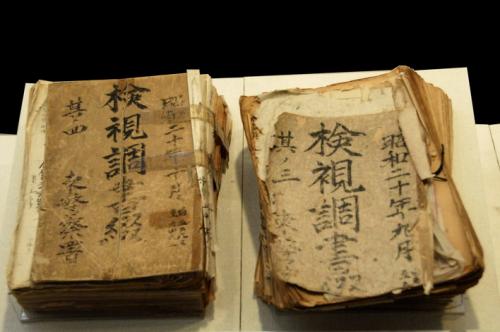 昭和二十年十月
検視調書綴
其ノ四
東警察署
昭和二十年九月
検視調書綴
其ノ三